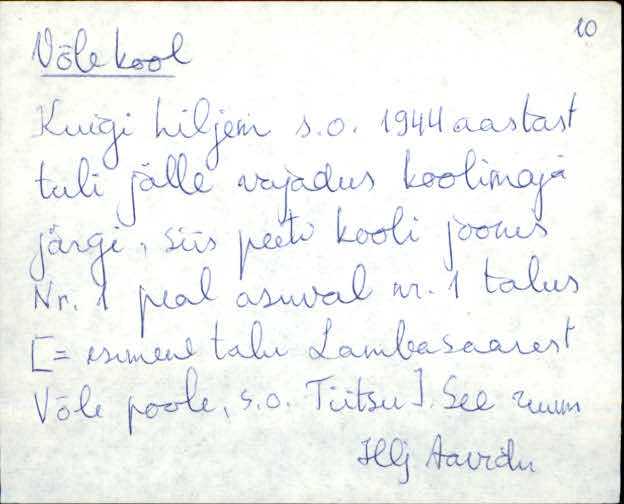 10
Võle kool
Kuigi hiljem s.o. 1944 aastast
tuli jälle vajadus koolimaja
järgi, siis peeti kooli joones
Nr. 1 peal asuval nr. 1 talus
[= esimene talu Lambasaarest
Võle poole, s.o. Tiitsu]. See ruum
Hlj Aavidu